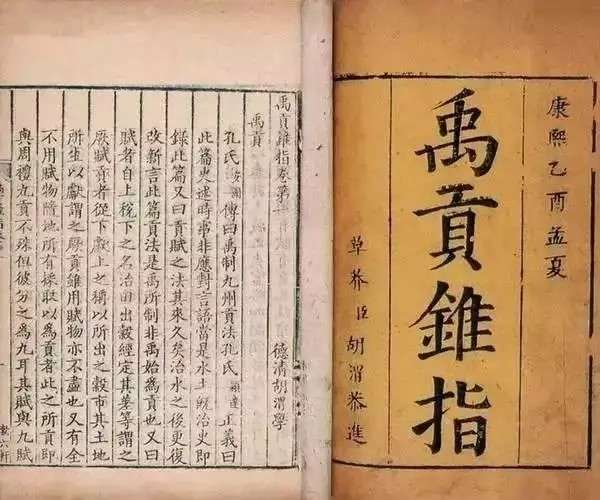 康熙乙酉孟夏
禹貢錐指
草莽臣胡渭恭進
禹貢錐指卷第
德清胡渭學
禹貢
孔氏安國傳曰禹制九州貢法孔氏穎達正義曰
此篇史述時事非應對言語當是水土既治史即
錄此篇又曰貢賦之法其來久矣治水之後更復
改新言此篇貢法是禹所制非禹始為貢也又曰
賦者自上稅下之名治田出穀經定其差等謂之
厥賦貢者從下獻上之稱以所出之穀市其土地
所生以獻謂之厥貢雖用賦物亦不盡也又有全
不用賦物隨地所有採取以為貢者此之所貢即
與周禮九貢不殊但彼分之為九耳其賦與九賦